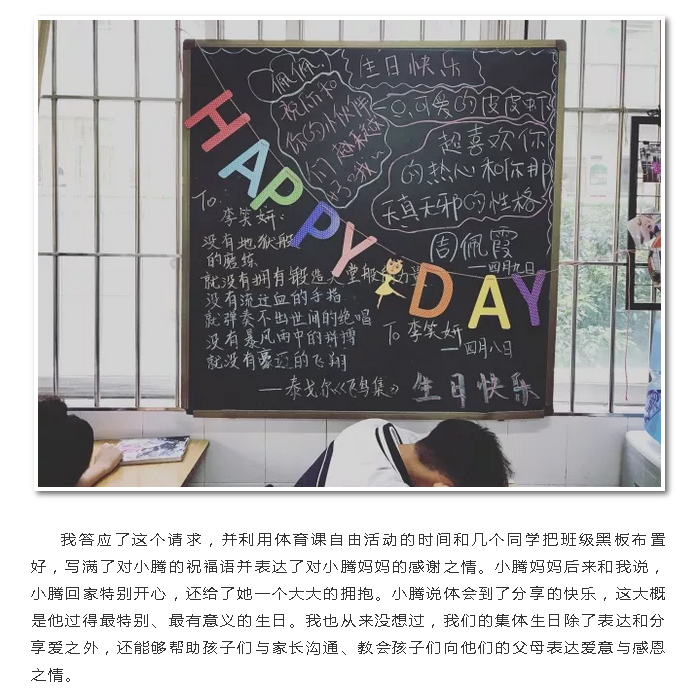 佩佩
生日快乐
祝你和
你的小伙伴
们
只可爱的皮皮虾
超喜欢你
的热心和你那
天真无邪的性格
周佩霞
—四月九日
HAPPY DAY
To
李笑妍:
没有地狱般
的磨练
就没有拥有锻造天堂般
没有流过血的手指
就弹奏不出世间的绝唱
没有暴风雨中的拼博
就没有豪迈的飞翔
——泰戈尔《飞鸟集》
To 李笑妍
—四月八日
生日快乐
我答应了这个请求,并利用体育课自由活动的时间和几个同学把班级黑板布置
好,写满了对小腾的祝福语并表达了对小腾妈妈的感谢之情。小腾妈妈后来和我说,
小腾回家特别开心,还给了她一个大大的拥抱。小腾说体会到了分享的快乐,这大概
是他过得最特别、最有意义的生日。我也从来没想过,我们的集体生日除了表达和分
享爱之外,还能够帮助孩子们与家长沟通、教会孩子们向他们的父母表达爱意与感恩
之情。